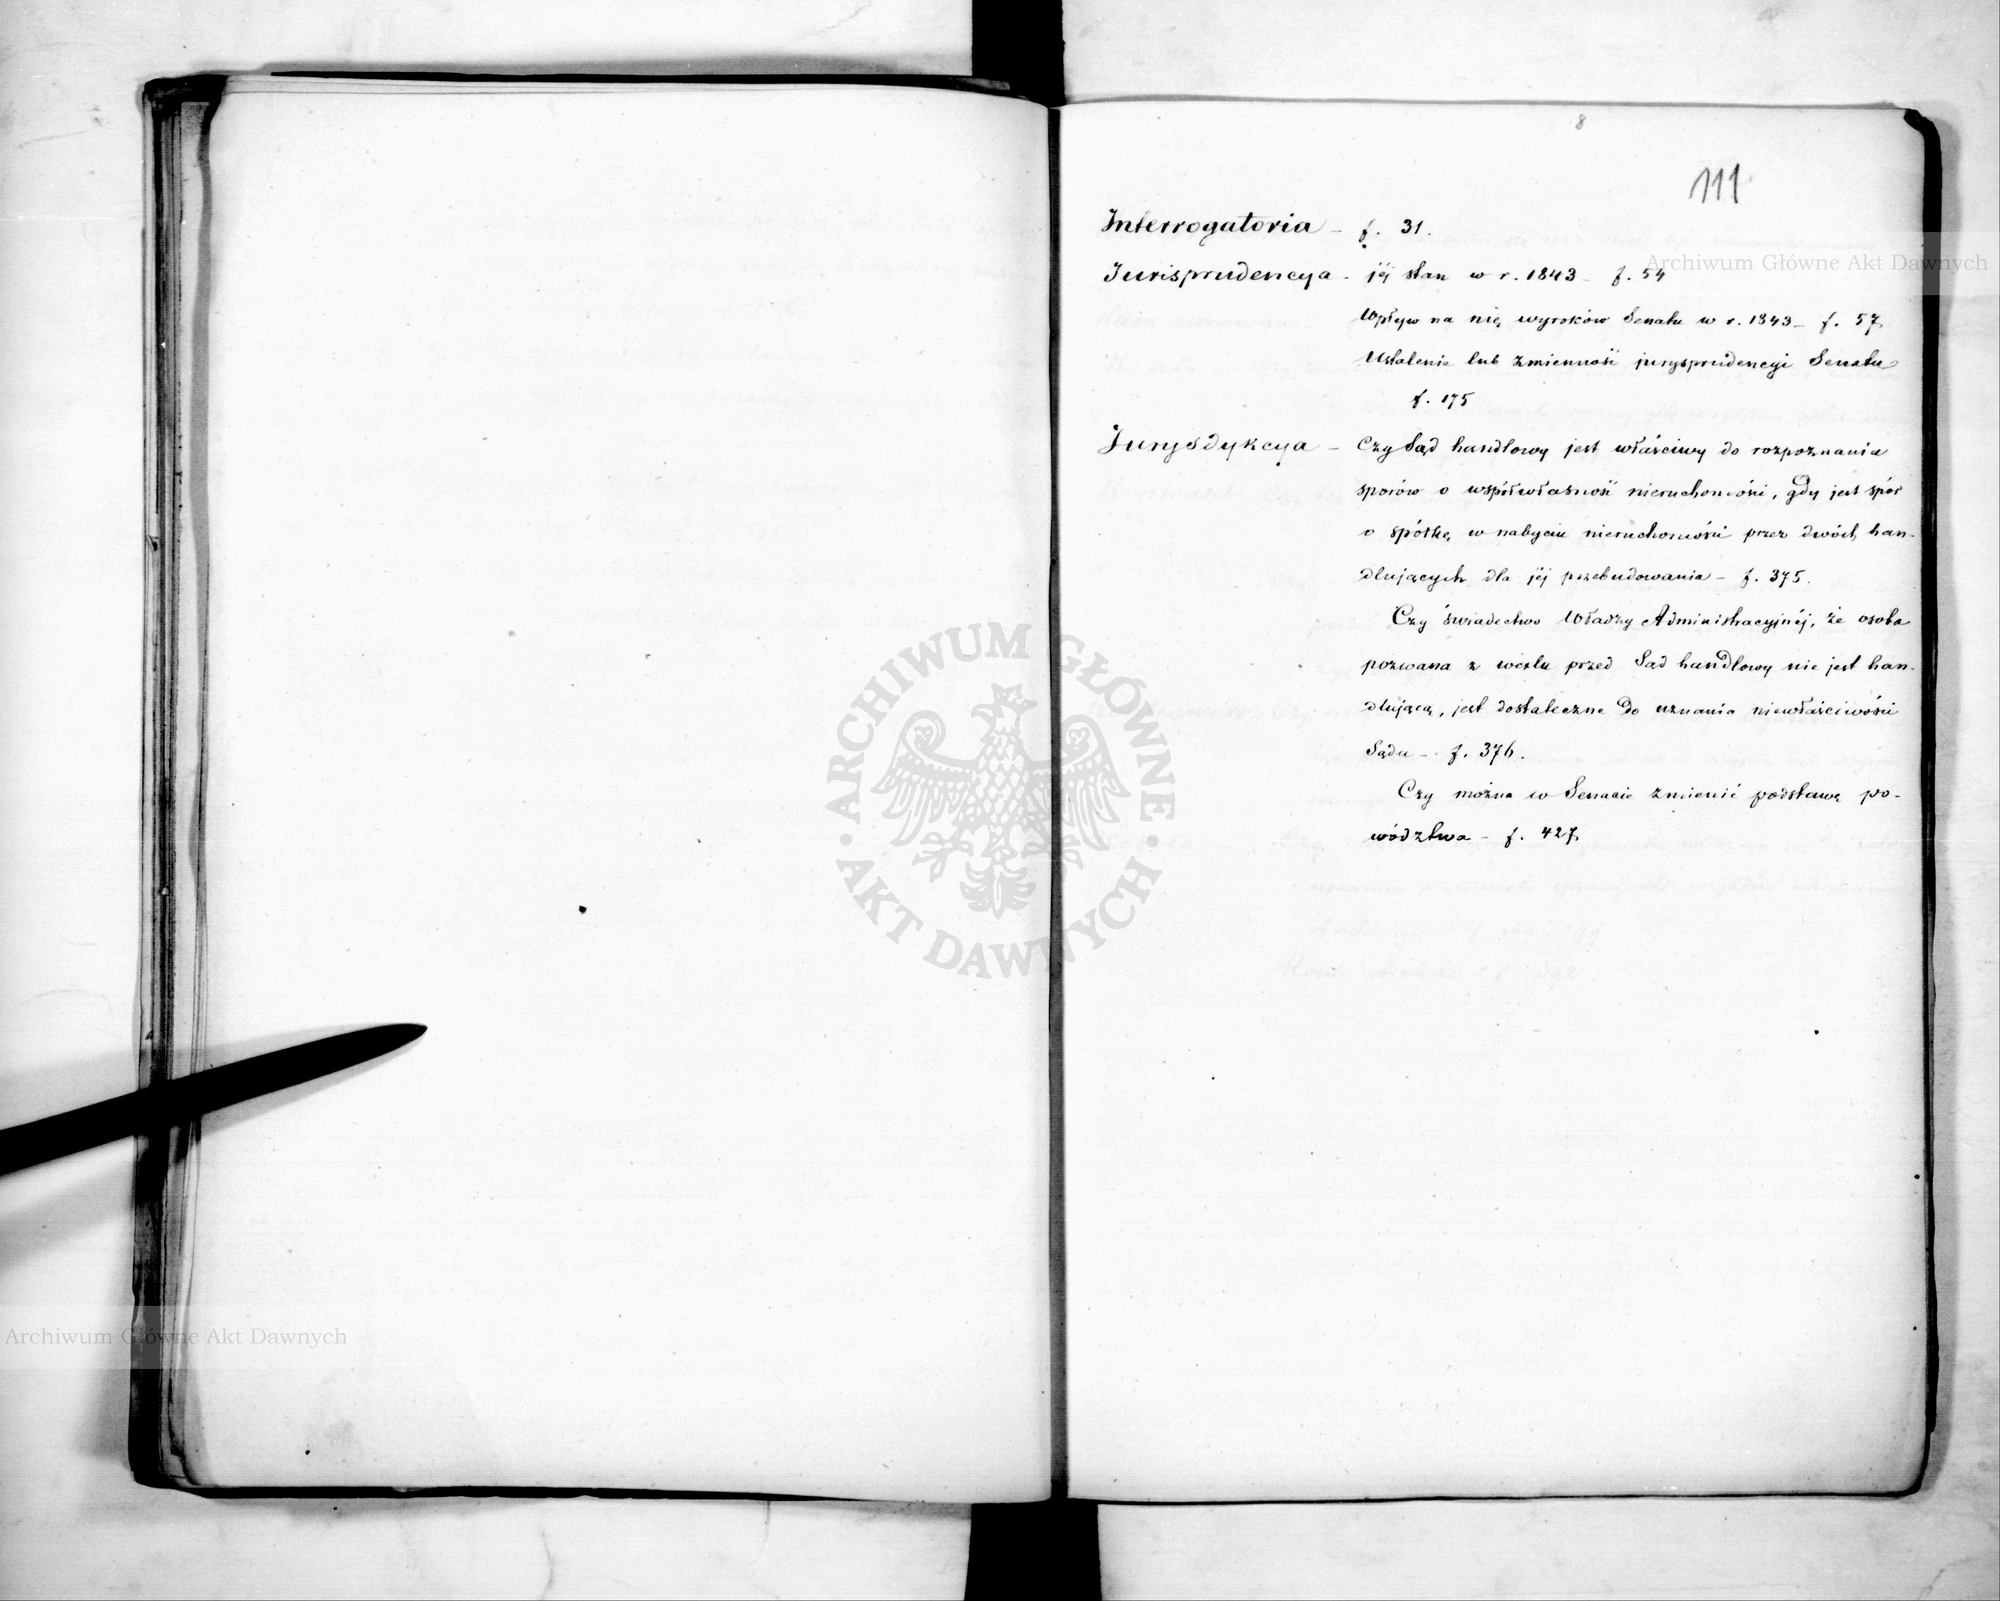 8
111
Interrogatoria – f. 31.
Jurisprudencya – jéj stan w r. 1843 – f. 54
Wpływ na nię wyroków Senatu w r. 1843 – f. 57
Ustalenie lub zmienność jurysprudencyi Senatu
f. 175
Jurysdykcya – Czy Sąd handlowy jest właściwy do rozpoznania
sporów o współwłasność nieruchomości, gdy jest spór
o spółkę w nabyciu nieruchomości przez dwóch han-
dlujących dla jéj przebudowania – f. 375.
Czy świadectwo Władzy Administracyjnéj, że osoba
pozwana z wexlu przed Sąd handlowy nie jest han-
dlującą, jest dostateczne do uznania niewłaściwości
Sądu – f. 376.
Czy można w Senacie zmienić podstawę po-
wództwa – f. 427
Archiwum Główne Akt Dawnych
ARCHIWUM GŁÓWNE · AKT DAWNYCH ·
Archiwum Główne Akt Dawnych